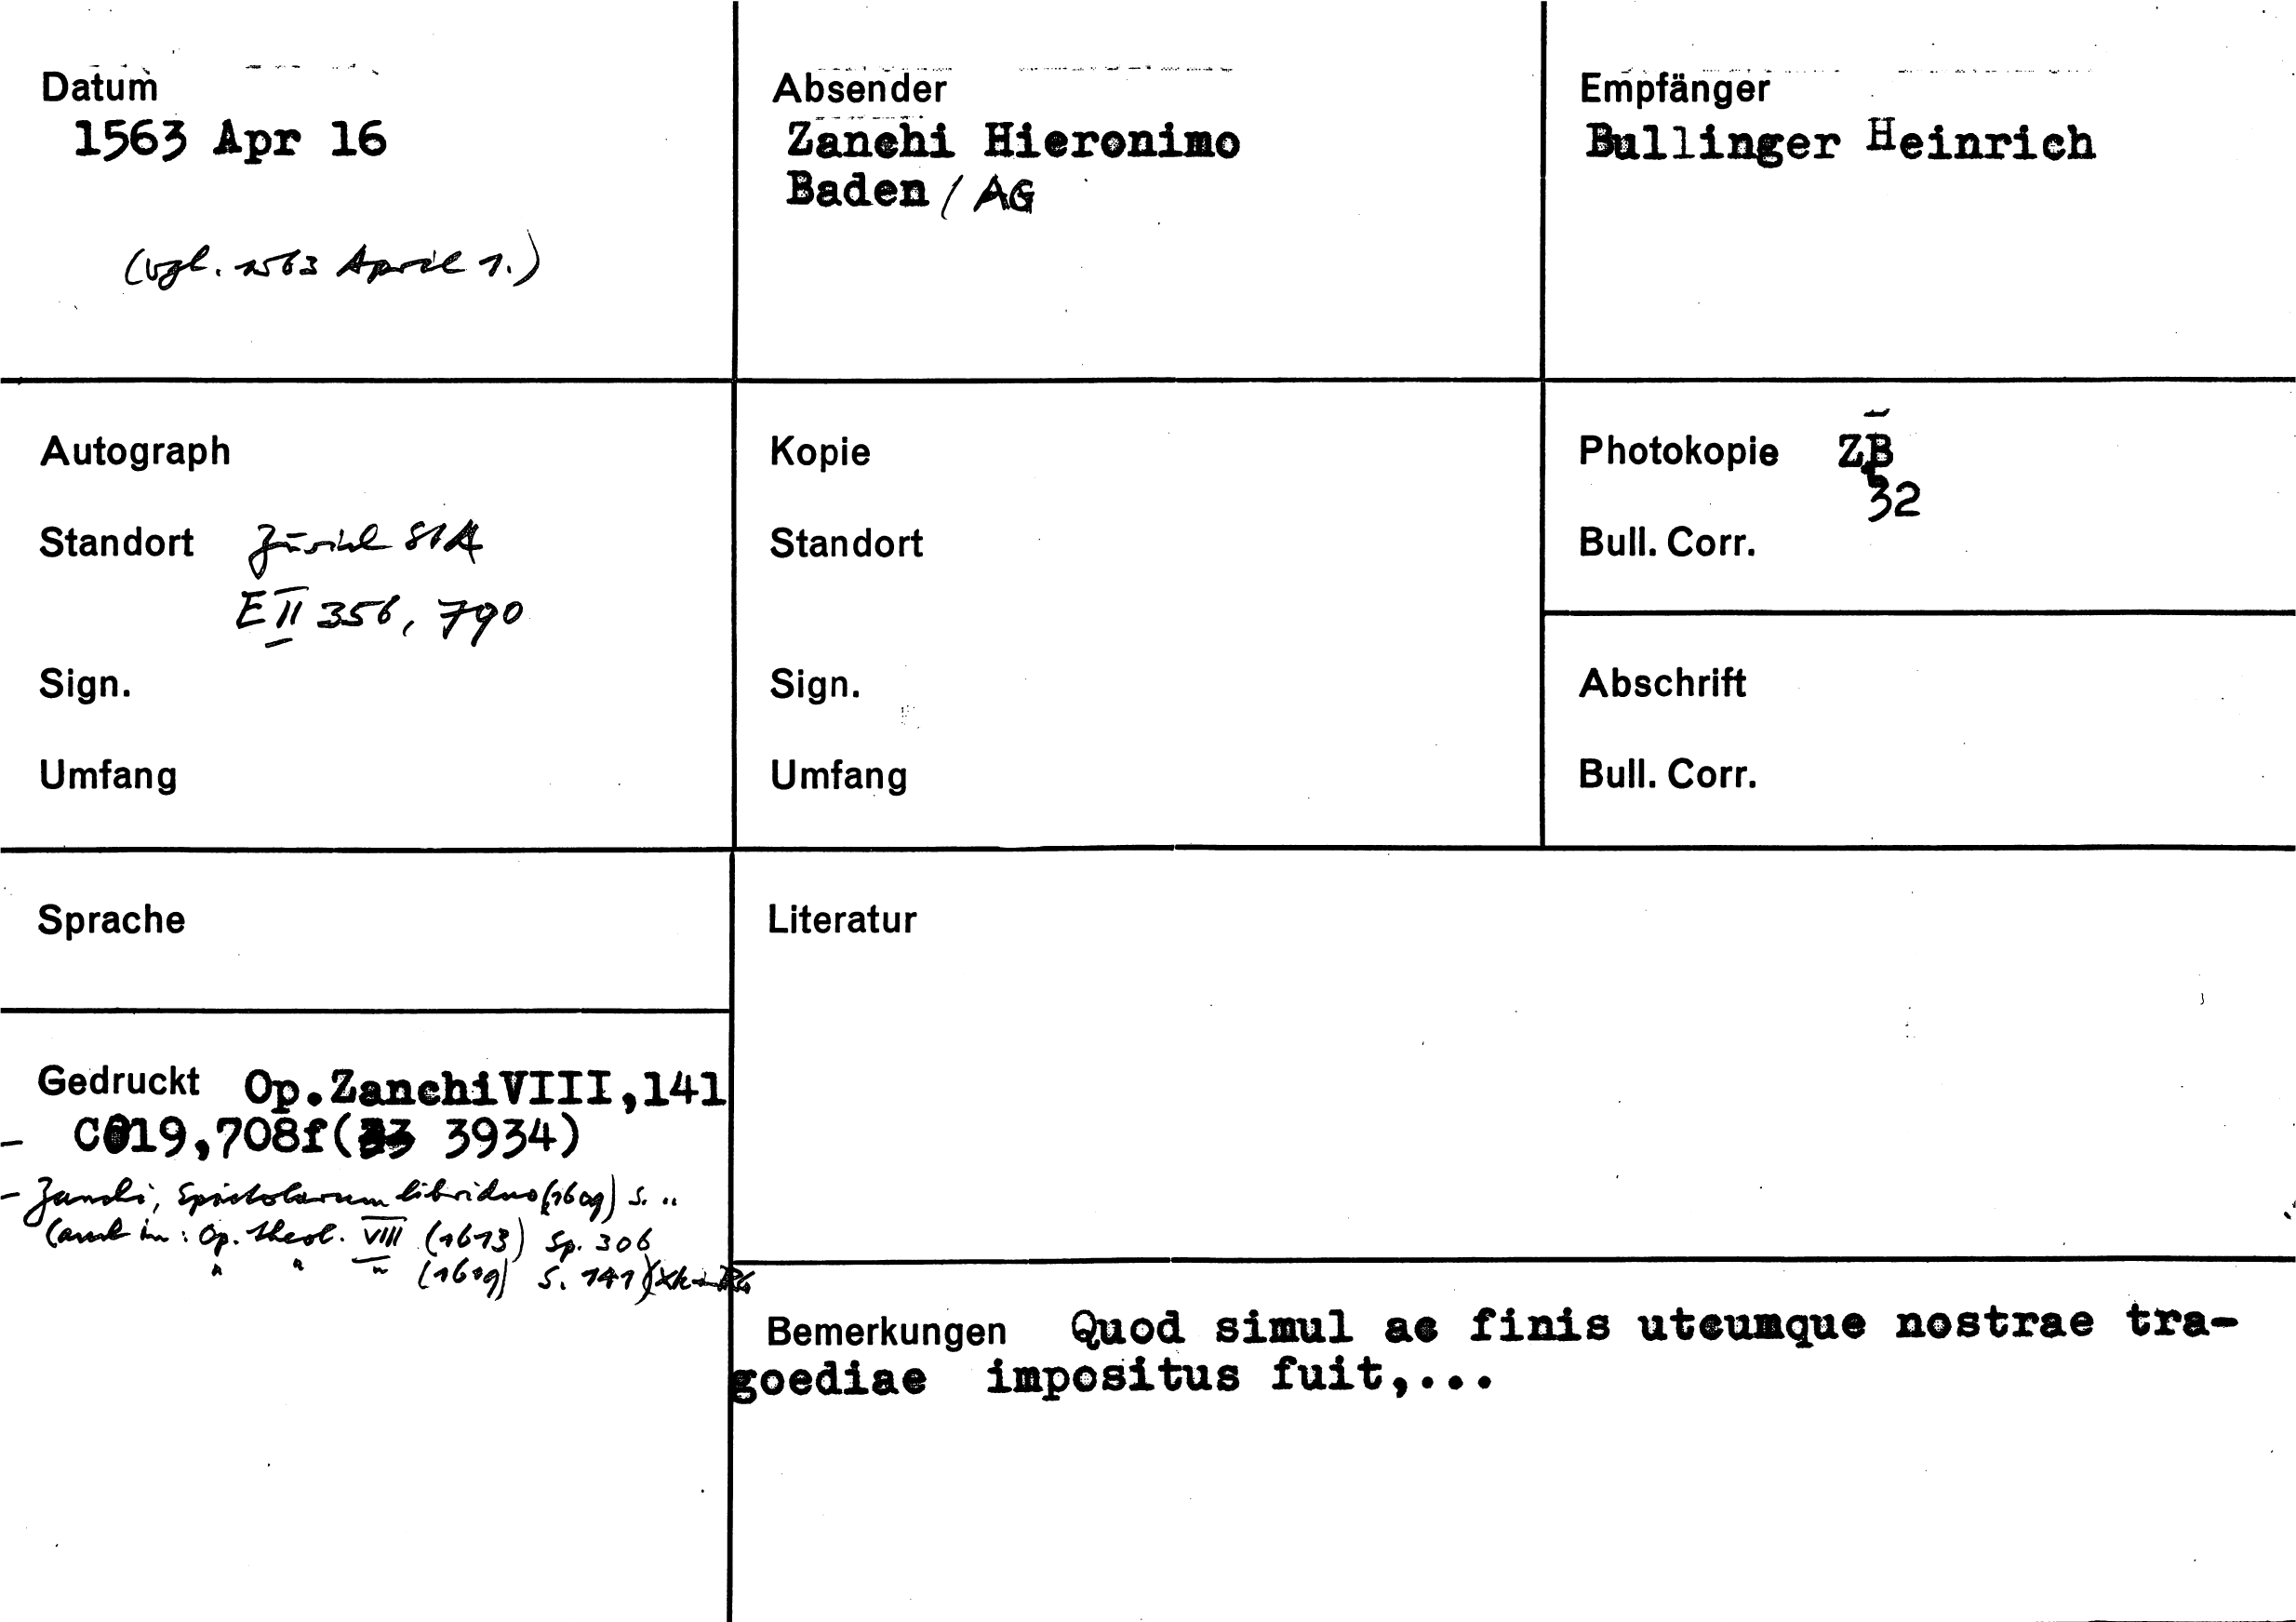 Datum
1563 Apr 16
(vgl. 1563 April 1.)
Absender
Zanchi Hieronimo
Baden / AG
Empfänger
Bullinger Heinrich
Autograph
Standort Zürich StA
E II 356, 790
Sign.
Umfang
Kopie
Standort
Sign.
Umfang
Photokopie ZB
32
Bull. Corr.
Abschrift
Bull. Corr.
Sprache
Gedruckt Op.ZanchiVIII,141
- CO19,708f( 3934)
- Zanchi, Epistolarum libri duo (1609) S. ..
(auch in: Op. theol. VIII (1613) Sp. 306
" " " (1609) S. 141)
Literatur
Bemerkungen Quod simul ac finis utcumque nostrae tra-
goediae impositus fuit,...